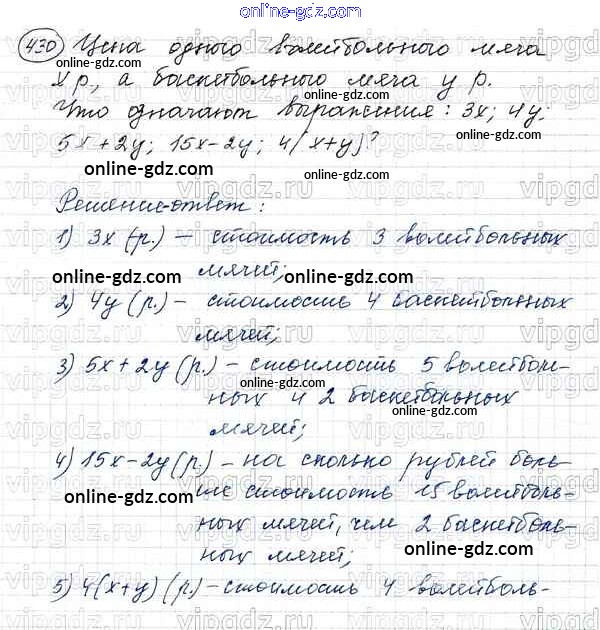 online-gdz.com
430 Цена одного волейбольного мяча
x р, а баскетбольного мяча y р.
online-gdz.com
Что означают выражения: 3x; 4y;
5x + 2y; 15x - 2y; 4(x+y)?
online-gdz.com
online-gdz.com
Решение-ответ:
online-gdz.com
1) 3x (р.) – стоимость 3 волейбольных
мячей;
online-gdz.com
online-gdz.com
2) 4y (р.) – стоимость 4 баскетбольных
мячей;
online-gdz.com
3) 5x + 2y (р.) – стоимость 5 волейболь-
online-gdz.com
ных и 2 баскетбольных
online-gdz.com
мячей;
4) 15x - 2y (р.) – на сколько рублей боль-
ше стоимость 15 волейболь-
online-gdz.com
ных мячей, чем 2 баскетболь-
ных мячей;
online-gdz.com
5) 4(x+y) (р.) – стоимость 4 волейболь-
online-gdz.com